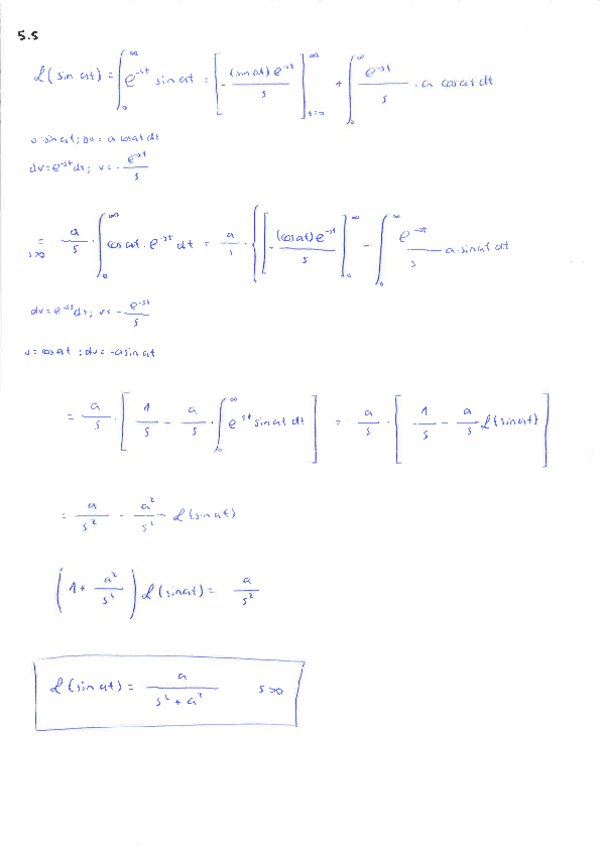 5.5
ℒ(sin at) = ∫₀^∞ e^{-st} sin at = [ - (sin at) e^{-st} / s ]_{t=0}^∞ + ∫₀^∞ e^{-st} / s · a cos at dt
u = sin at ; du = a cos at dt
dv = e^{-st} ds ; v = - e^{-st} / s
=_{s>0} a/s · ∫₀^∞ cos at · e^{-st} dt = a/s · { [ - (cos at) e^{-st} / s ]₀^∞ - ∫₀^∞ e^{-st} / s a · sin at dt
dv = e^{-st} ds ; v = - e^{-st} / s
u = cos at ; du = -a sin at
= a/s · [ 1/s - a/s · ∫₀^∞ e^{-st} sin at dt ] = a/s · [ 1/s - a/s ℒ(sin at) ]
= a/s² - a²/s² ℒ(sin at)
( 1 + a²/s² ) ℒ(sin at) = a/s²
ℒ(sin at) = a / s² + a² s>0